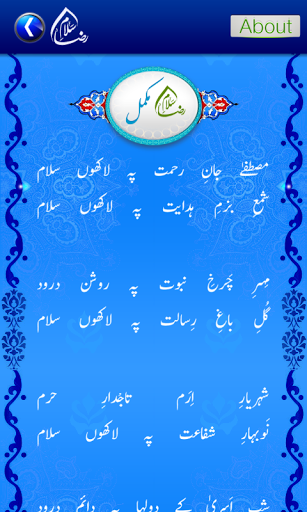 سلام رضا
About
سلام رضا مکمل
مصطفےٰ جانِ رحمت پہ لاکھوں سلام
شمعِ بزمِ ہدایت پہ لاکھوں سلام
مہرِ چرخِ نبوت پہ روشن درود
گُلِ باغِ رسالت پہ لاکھوں سلام
شہریارِ اِرَم تاجدارِ حرم
نَوبہارِ شفاعت پہ لاکھوں سلام
شبِ اسریٰ کے دولہا پہ دائم درود